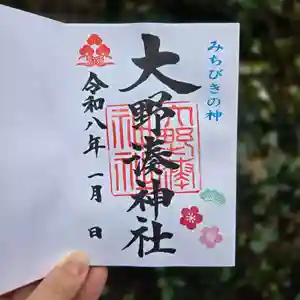 みちびきの神
大野湊神社
令和八年 一月 日
大野湊
神社